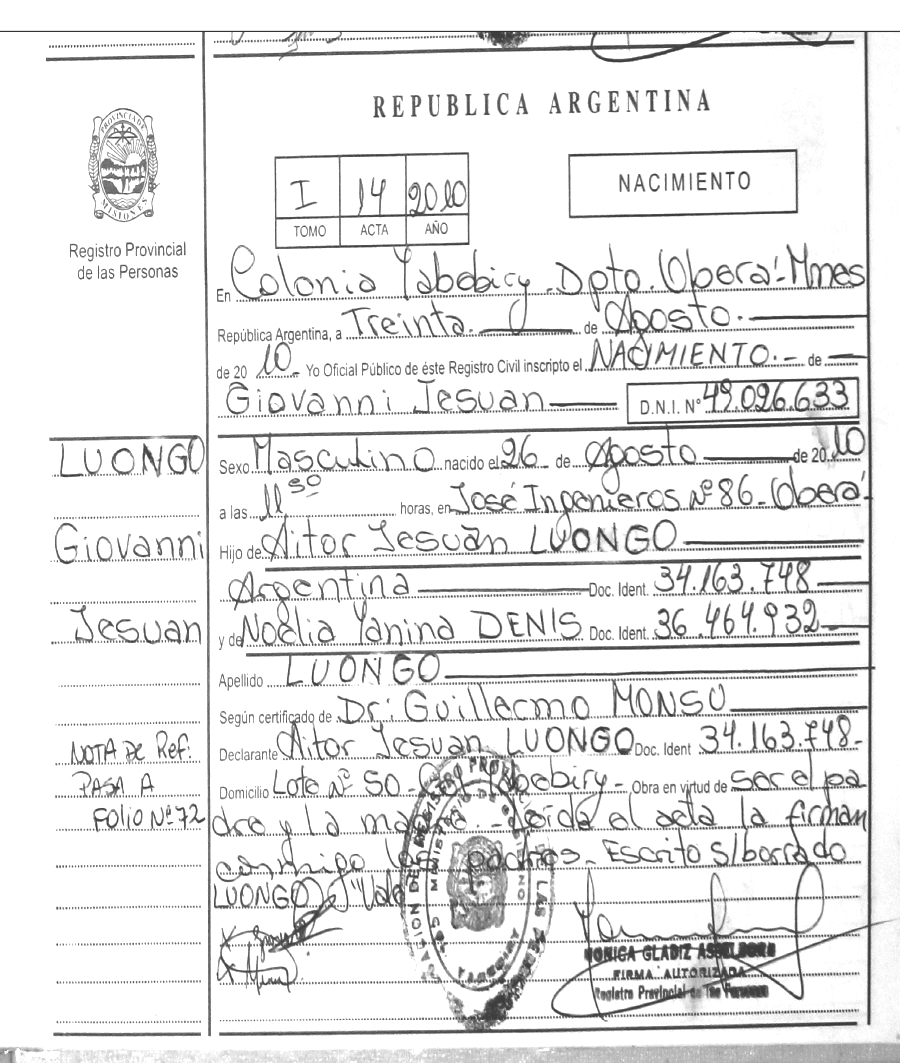 REPUBLICA ARGENTINA
PROVINCIA DE
MISIONES
Registro Provincial
de las Personas
I 14 2010
TOMO ACTA AÑO
NACIMIENTO
En Colonia Yabebiry - Dpto. Oberá - Mnes
República Argentina, a Treinta de Agosto.
de 2010 Yo Oficial Público de éste Registro Civil inscripto el NACIMIENTO.- de
Giovanni Jesuan D.N.I. Nº 49.096.633
LUONGO
Giovanni
Jesuan
NOTA DE Ref:
PASA A
FOLIO Nº 72
Sexo Masculino nacido el 26 de Agosto de 2010
a las 11 50 horas, en José Ingenieros Nº 86 - Oberá -
Hijo de Aitor Jesuan LUONGO
Argentina Doc. Ident. 34.163.748
y de Noelia Yanina DENIS Doc. Ident. 36.464.932
Apellido LUONGO
Según certificado de Dr: Guillermo MONSU
Declarante Aitor Jesuan LUONGO Doc. Ident 34.163.748-
Domicilio Lote Nº 50 - Yabebiry - Obra en virtud de Ser el pa
dre y la madre - Leída el acta la firman
conmigo los padres - Escrito s/borrado
LUONGO "Vale
MONICA GLADIZ
FIRMA AUTORIZADA
Registro Provincial de las Personas